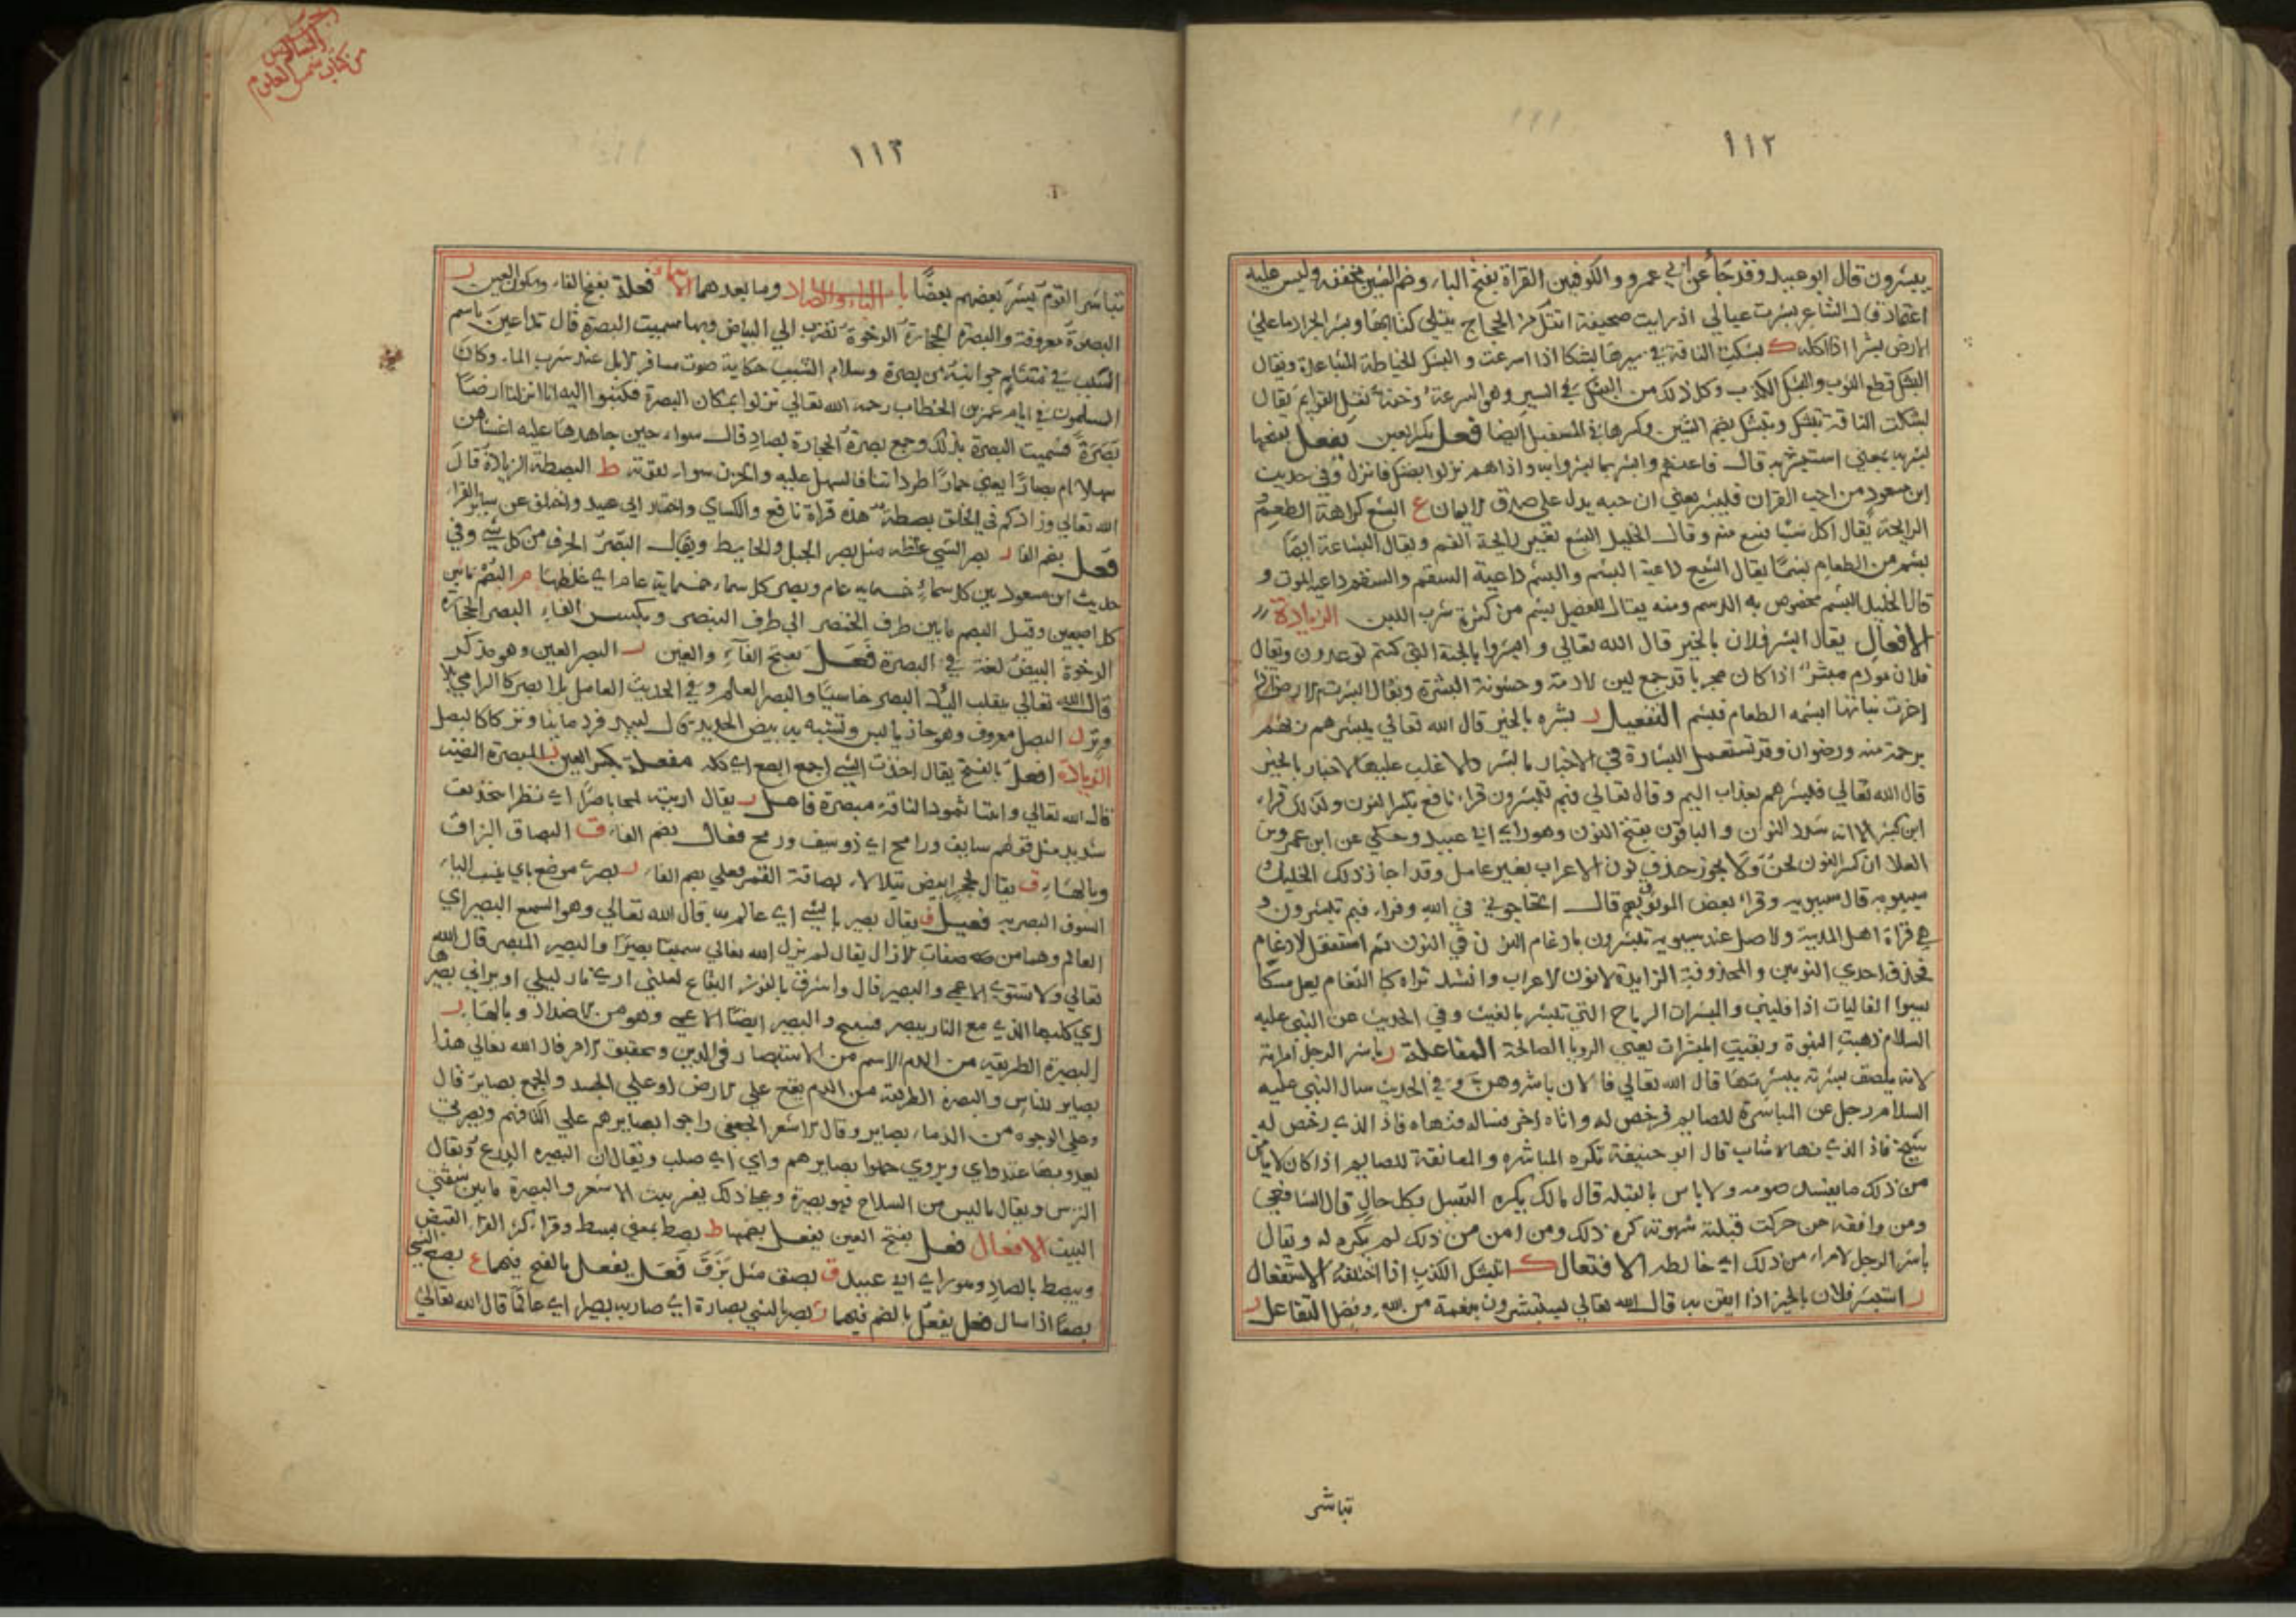 ١١٢
يبشرون قال ابو عبيد وقد جاء عن ابي عمرو والكوفيين القراة بفتح الباء وضم الشين مخففة وليس عليه
اعتماد قال الشاعر بشرت عيالي اذ رايت صحيفة اتتك من الحجاج يتلى كتابها وبشر الجراد ما على
الارض بشرا اذا اكله ك بشكت الناقة في سيرها بشكا اذا اسرعت والبشك الخياطة المتباعدة ويقال
البشك قطع الثوب والبشك الكذب وكل ذلك من البشك في السير وهو السرعة وخفة نقل القوايم يقال
بشكت الناقة تبشك وتبشك بضم الشين وكسرها في المستقبل ايضا فعل بكسر العين يفعل بفتحها
بشر به بمعنى استبشر به قال فاعنهم وابشر بما بشروا به واذا هم نزلوا بضنك فانزل وفي حديث
ابن مسعود من احب القران فليبشر يعني ان حبه يدل على صدق الايمان ع البشع كراهة الطعم و
الرايحة يقال اكل شيا فبشع منه وقال الخليل البشع تغير رايحة الفم ويقال البشاعة ايضا
بشم من الطعام بشما يقال الشبع داعية البشم والبشم داعية السقم والسقم داعية الموت و
قال الخليل البشم مخصوص به الدسم ومنه يقال للفصل بشم من كثرة شرب اللبن الزيادة
الافعال يقال ابشر فلان بالخير قال الله تعالي وابشروا بالجنة التي كنتم توعدون ويقال
فلان مودم مبشر اذا كان مجربا قد جمع لين الادمة وخشونة البشرة ويقال ابشرت الارض اذا
اخرجت نباتها ابشمه الطعام فبشم التفعيل ر بشره بالخير قال الله تعالي يبشرهم ربهم
برحمة منه ورضوان وقد تستعمل البشارة في الاخبار بالشر والاغلب عليها الاخبار بالخير
قال الله تعالي فبشرهم بعذاب اليم وقال تعالي فبم تبشرون قراء نافع بكسر النون وكذلك قراء
ابن كثير الا انه شدد النون والباقون بفتح النون وهو راي ابي عبيد وحكي عن ابن عمرو بن
العلا ان كسر النون لحن ولا يجوز حذف نون الاعراب بغير عامل وقد اجاز ذلك الخليل و
سيبويه قال سيبويه وقراء بعض الموثوق بهم قال اتحاجوني في الله وقراء فبم تبشرون و
هي قراة اهل المدينة والاصل عند سيبويه تبشرون بادغام النون في النون ثم استثقل الادغام
فحذف احدي النونين والمحذوفة الزايدة لا نون الاعراب وانشد تراه كالثغام يعل مسكا
يسوء الفاليات اذا فليني والمبشرات الرياح التي تبشر بالغيث وفي الحديث عن النبي عليه
السلام ذهبت النبوة وبقيت المبشرات يعني الرويا الصالحة المفاعلة ر باشر الرجل امراته
لانه يلصق بشرته ببشرتها قال الله تعالي فالان باشروهن وفي الحديث سال النبي عليه
السلام رجل عن المباشرة للصايم فرخص له واتاه اخر فساله فنهاه فاذا الذي رخص له
شيخ فاذا الذي نهاه شاب قال ابو حنيفة تكره المباشرة والمعانقة للصايم اذا كان لا يامن
من ذلك ما يفسد صومه ولا باس بالقبلة قال مالك يكره التقبيل بكل حال قال الشافعي
ومن وافقه من حركت قبلته شهوته كره ذلك ومن امن من ذلك لم يكره له ويقال
باشر الرجل الامراء من ذلك اي خالطه الافتعال ك ابتشك الكذب اذا اختلقه الاستفعال
ر استبشر فلان بالخير اذا ايقن به قال الله تعالي يستبشرون بنعمة من الله وفضل التفاعل ر
تباشر
الجزء السادس
من كتاب شمس العلوم
١١٣
تباشر القوم يبشر بعضهم بعضا باب الباء والصاد وما بعدهما الاسماء فعلة بفتح الفاء وسكون العين ر
البصرة معروفة والبصرة الحجارة الرخوة تضرب الي البياض وبها سميت البصرة قال تداعين باسم
الشيب في متثلم جوانبه من بصرة وسلام الشيب حكاية صوت مشافر الابل عند شرب الماء وكان
المسلمون في ايام عمر بن الخطاب رحمه الله تعالي نزلوا بمكان البصرة فكتبوا اليه انا انزلنا ارضا
بصرة فسميت البصرة بذلك وجمع بصرة الحجارة بصار قال سواء حين جاهدها عليه اغشاهن
سهلا ام بصارا يعني حمارا طرد اتنا فالسهل عليه والحزن سواء لقوته ط البصطة الزيادة قال
الله تعالي وزادكم في الخلق بصطة هذه قراة نافع والكساي واختيار ابي عبيد واختلف عن ساير القراء
فعل بضم الفاء ر بصر الشي غلظه مثل بصر الجبل والحايط ويقال البصر الحرف من كل شي وفي
حديث ابن مسعود بين كل سماء خمسماية عام وبصر كل سماء خمسماية عام اي غلظها م البصم ما بين
كل اصبعين وقيل البصم ما بين طرف الخنصر الي طرف البنصر وبكسر الفاء البصر الحجارة
الرخوة البيض لغة في البصرة فعل بفتح الفاء والعين ر البصر العين وهو مذكر
قال الله تعالي ينقلب اليك البصر خاسيا والبصر العلم وفي الحديث العامل بلا بصر كالرامي بلا
وتر ل البصل معروف وهو حار يابس وتشبه به بيض الحديد قال لبيد فردمانيا وتركا كالبصل
الزيادة افعل بالفتح يقال اخذت الشي اجمع ابصع اي كله مفعلة بكسر العين ر المبصرة المضية
قال الله تعالي واتينا ثمود الناقة مبصرة فاعل ر يقال اريته لمحا باصرا اي نظرا بتحديق
شديد مثل قولهم سايف ورامح اي ذو سيف ورمح فعال بضم الفاء ق البصاق البزاق
وبالهاء ق يقال لحجر ابيض يتلالاء بصاقة القمر فعلي بضم الفاء ر بصري موضع بالشام ينسب اليها
السيوف البصرية فعيل ر يقال بصير بالشي اي عالم به قال الله تعالي وهو السميع البصير اي
العالم وهما من صفات الازال يقال لم يزل الله تعالي سميعا بصيرا والبصير المبصر قال الله
تعالي ولا تستوي الاعمي والبصير قال واشرف بالغور اليفاع لعلني اري نار ليلي او يراني بصيرها
اي كلبها الذي مع النار يبصر فينبح والبصير ايضا الاعمي وهو من الاضداد وبالهاء ر
البصيرة الطريقة من الدم الاسم من الاستبصار في الدين وتحقيق الامر قال الله تعالي هذا
بصاير للناس والبصيرة الطريقة من الدم يقع علي الارض او علي الجسد والجمع بصاير قال
وعلي الوجوه من الدماء بصاير وقال الاشعر الجعفي راحوا بصايرهم علي اكتافهم وبصيرتي
يعدو بها عتد واي ويروي حملوا بصايرهم واي اي صلب ويقال ان البصيرة الدرع ويقال
الترس ويقال ما لبس من السلاح فهو بصيرة وعلي ذلك يفسر بيت الاشعر والبصيرة ما بين شقتي
البيت الافعال فعل بفتح العين يفعل بضمها ط بصط بمعني بسط وقراء اكثر القراء القبض
ويبصط بالصاد وهو راي ابي عبيد ق بصق مثل بزق فعل يفعل بالفتح فيهما ع بصع الشي
بصعا اذا سال فعل يفعل بالضم فيهما ر بصر بالشي بصارة اي صار به بصيرا اي عالما قال الله تعالي